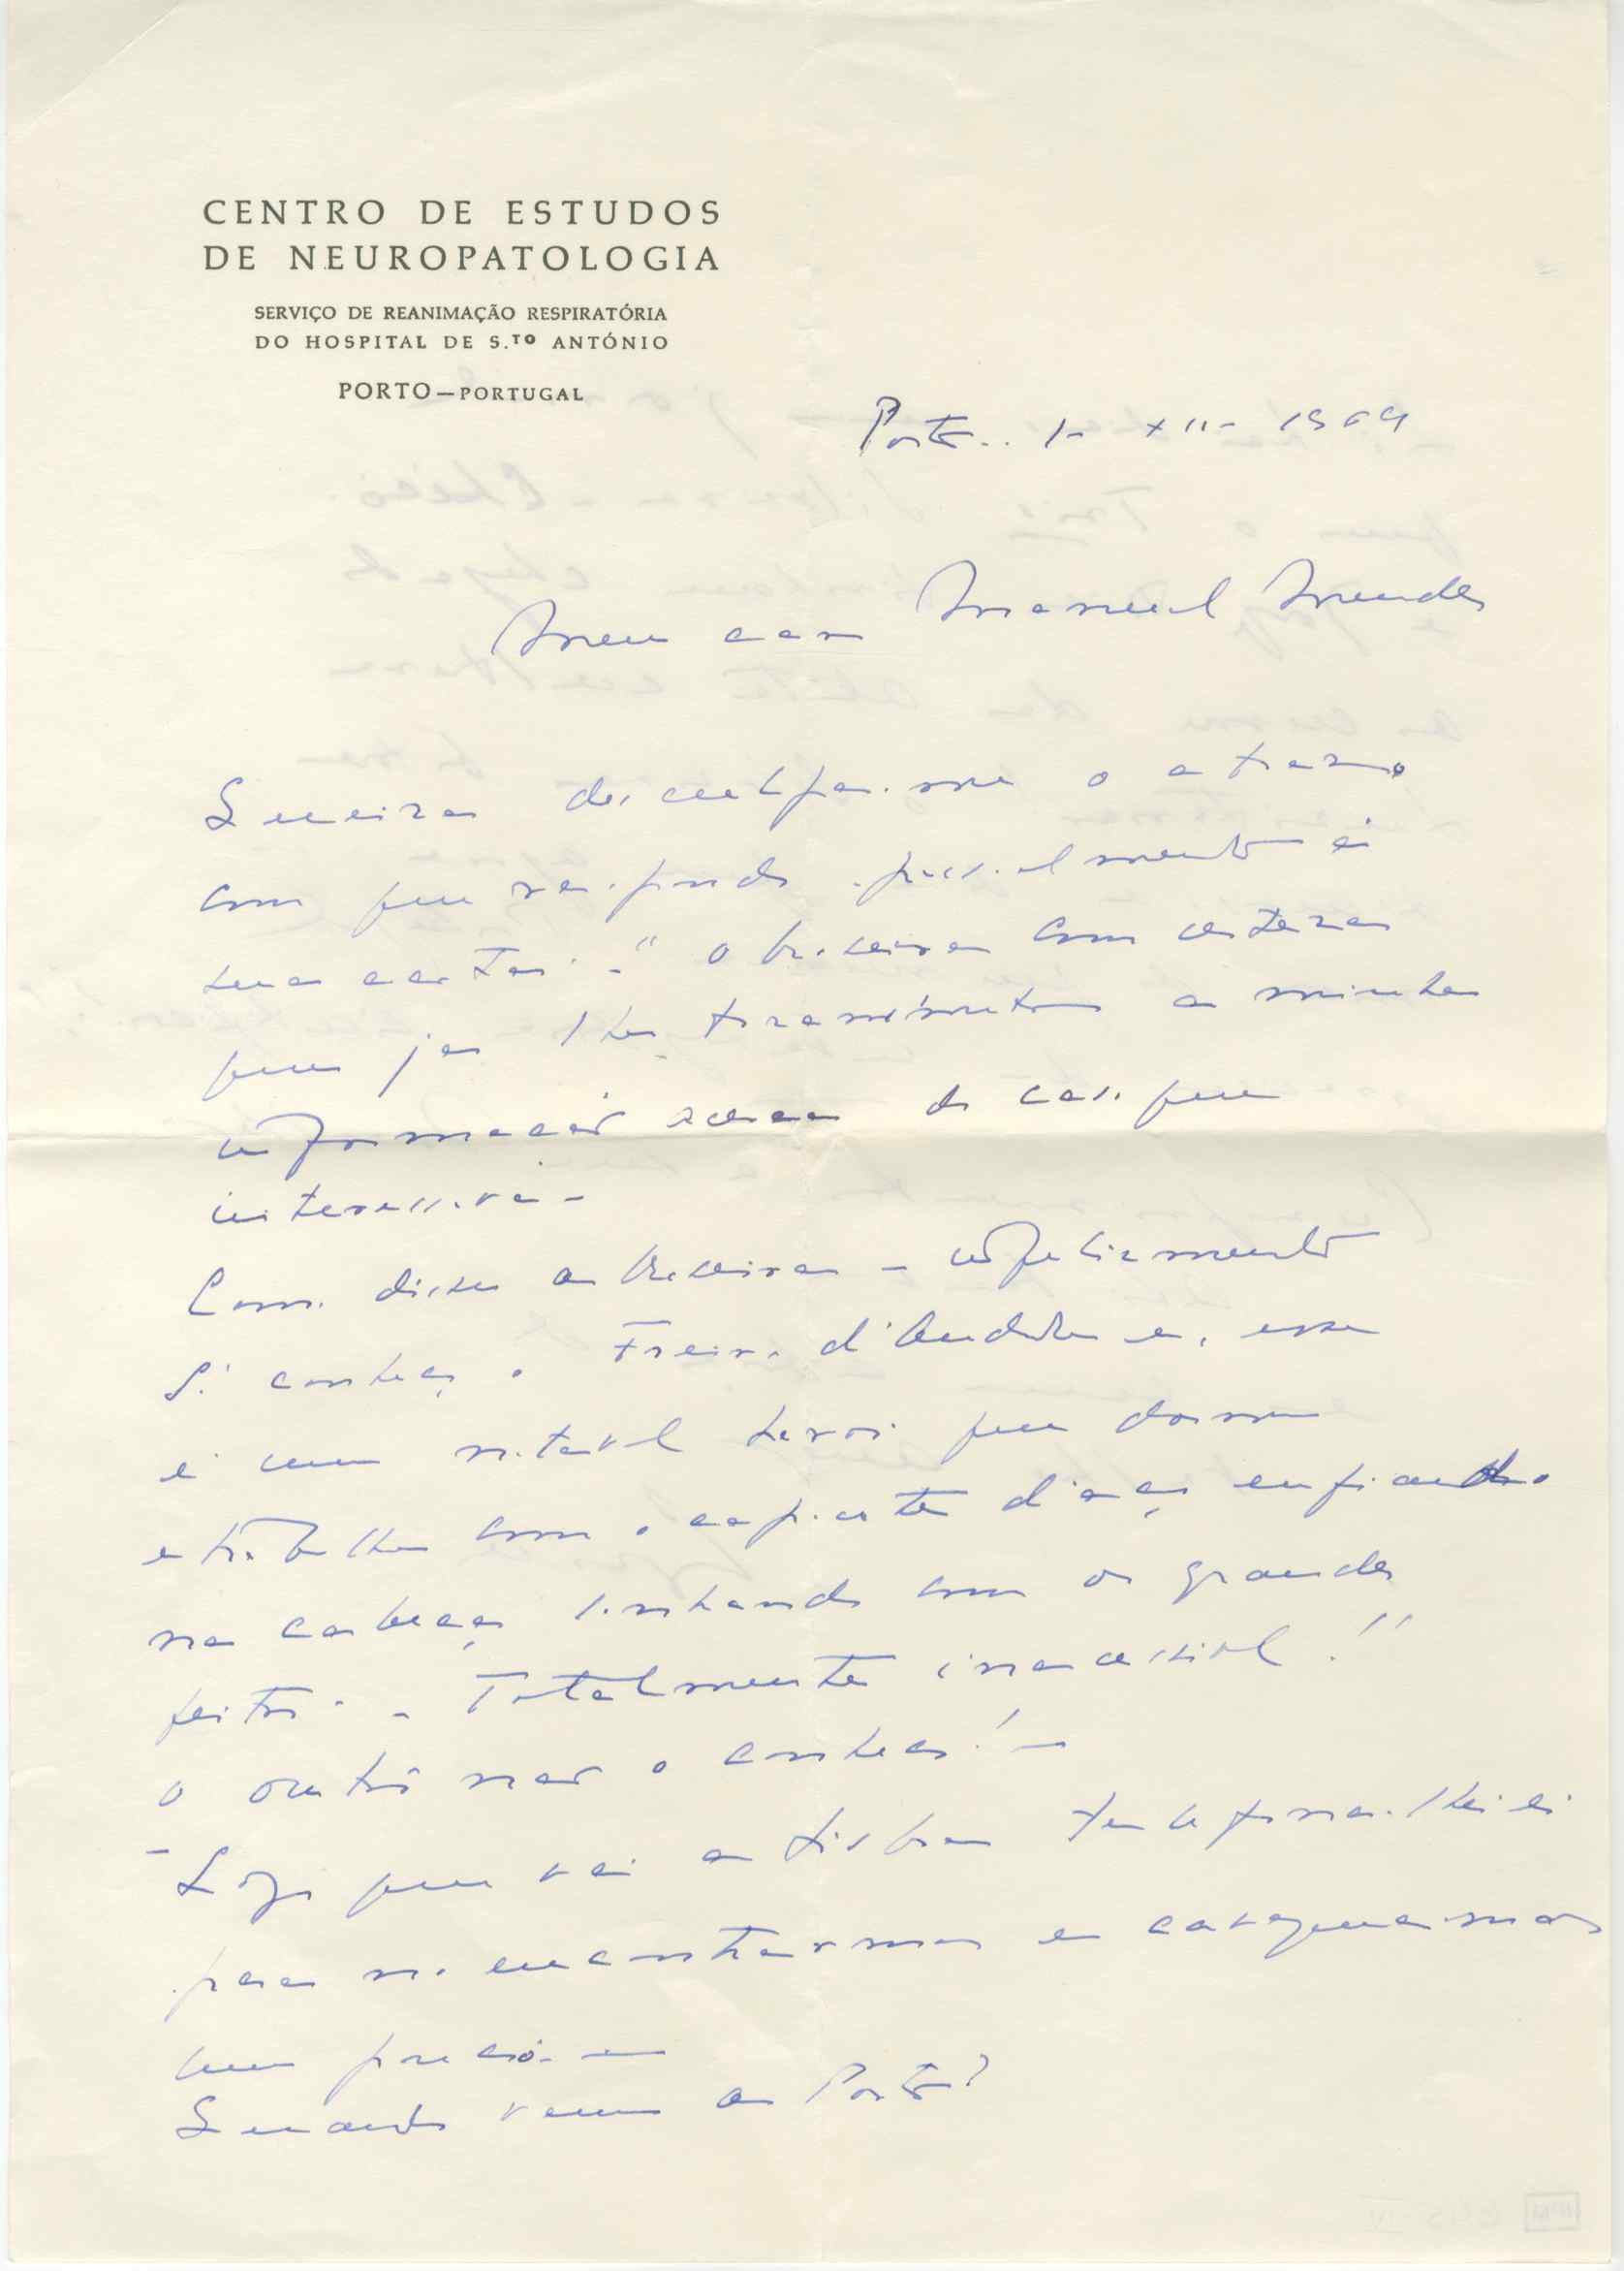 CENTRO DE ESTUDOS
DE NEUROPATOLOGIA
SERVIÇO DE REANIMAÇÃO RESPIRATÓRIA
DO HOSPITAL DE S.TO ANTÓNIO
PORTO—PORTUGAL
Porto.. 1- XII- 1969
Meu caro Manuel Mendes
Queira desculpar-me o atrazo
com que respondo pessoalmente á
sua carta. - O com certeza
que já lhe transmitiu a minha
informação acerca do caso que
interessava -
Como disse a - infelizmente
Só conheço o Freire d'Andrade e, esse
é um notavel heroi que dorme
e trabalha com o capacete d'aço enfiado
na cabeça sonhando com os grandes
feitos. - Totalmente inacessivel!
O outro não o conheço! -
- Logo que vá a Lisboa telefonar-lhe-ei
para nos encontrarmos e cavaquearmos
um pouco. -
Quando vem ao Porto?